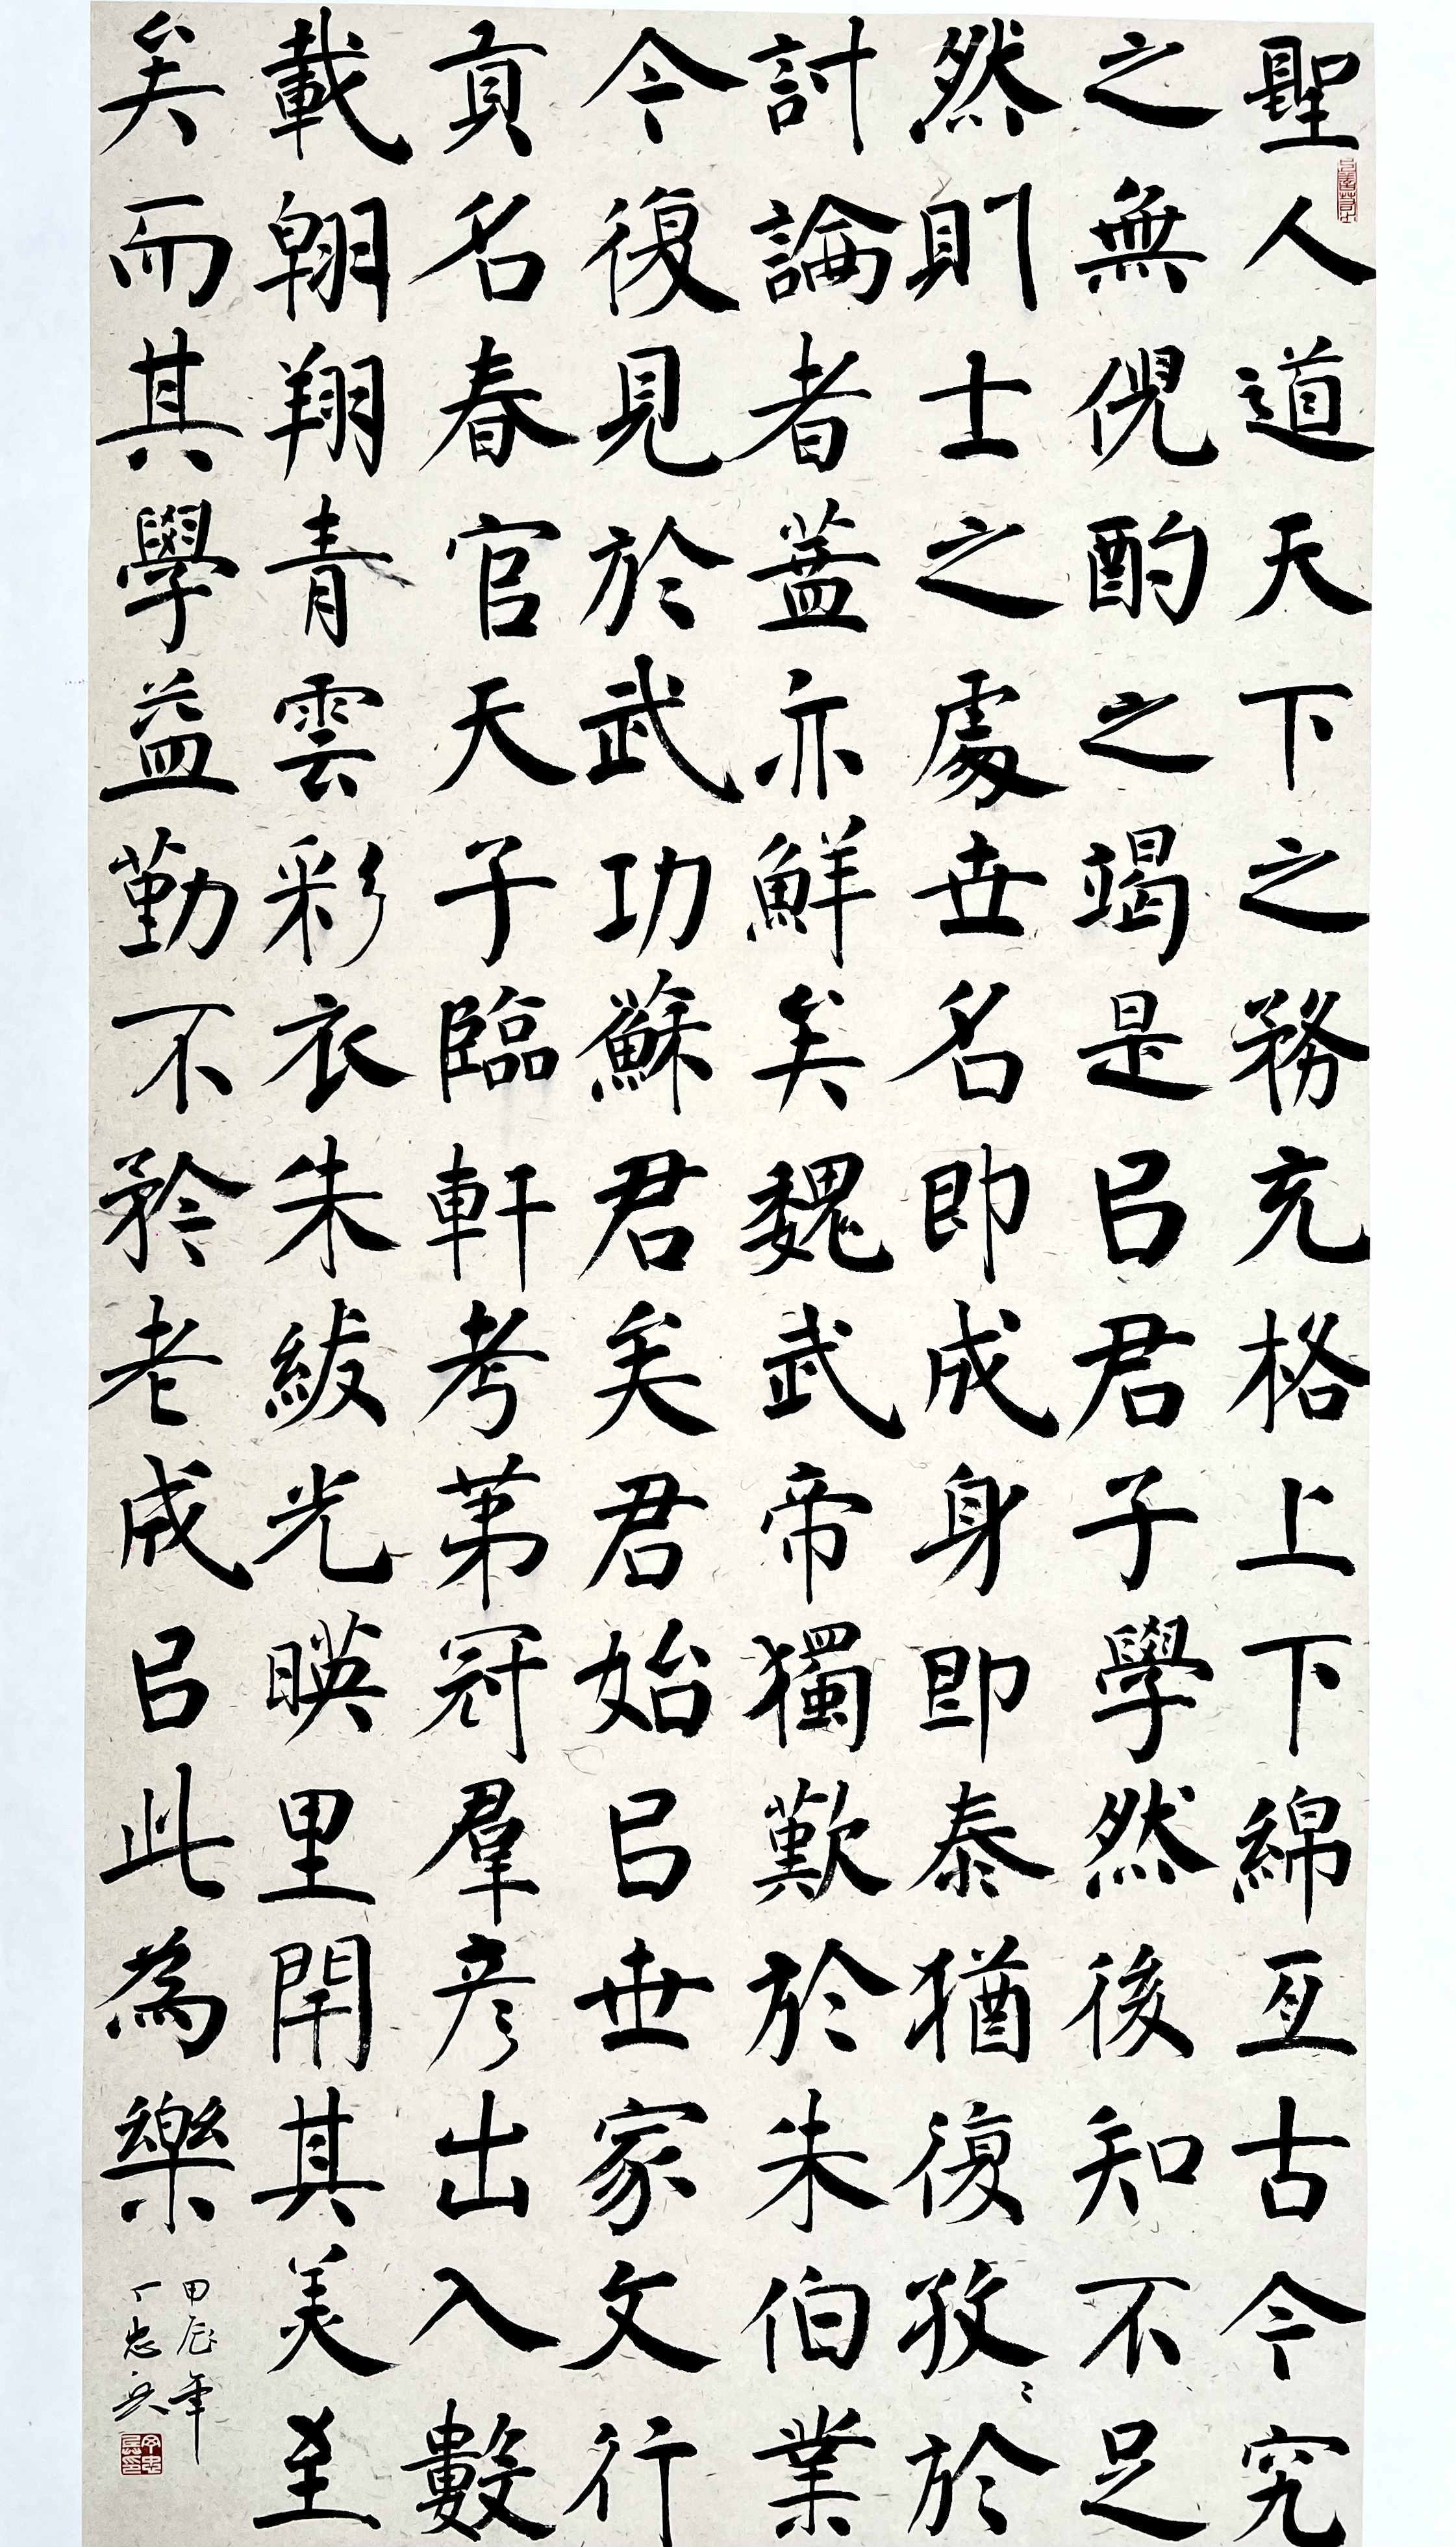 聖人道天下之務充格上下綿亙古今究
之無倪酌之竭是㠯君子學然後知不足
然則士之處世名即成身即泰猶復孜〻於
討論者蓋亦鮮矣魏武帝獨歎於朱伯業
今復見於武功蘇君矣君始㠯世家文行
貢名春官天子臨軒考苐冠羣彦出入數
載翱翔青雲彩衣朱紱光暎里閈其美至
矣而其學益勤不矜老成㠯此為樂
甲辰年
丁忠兵